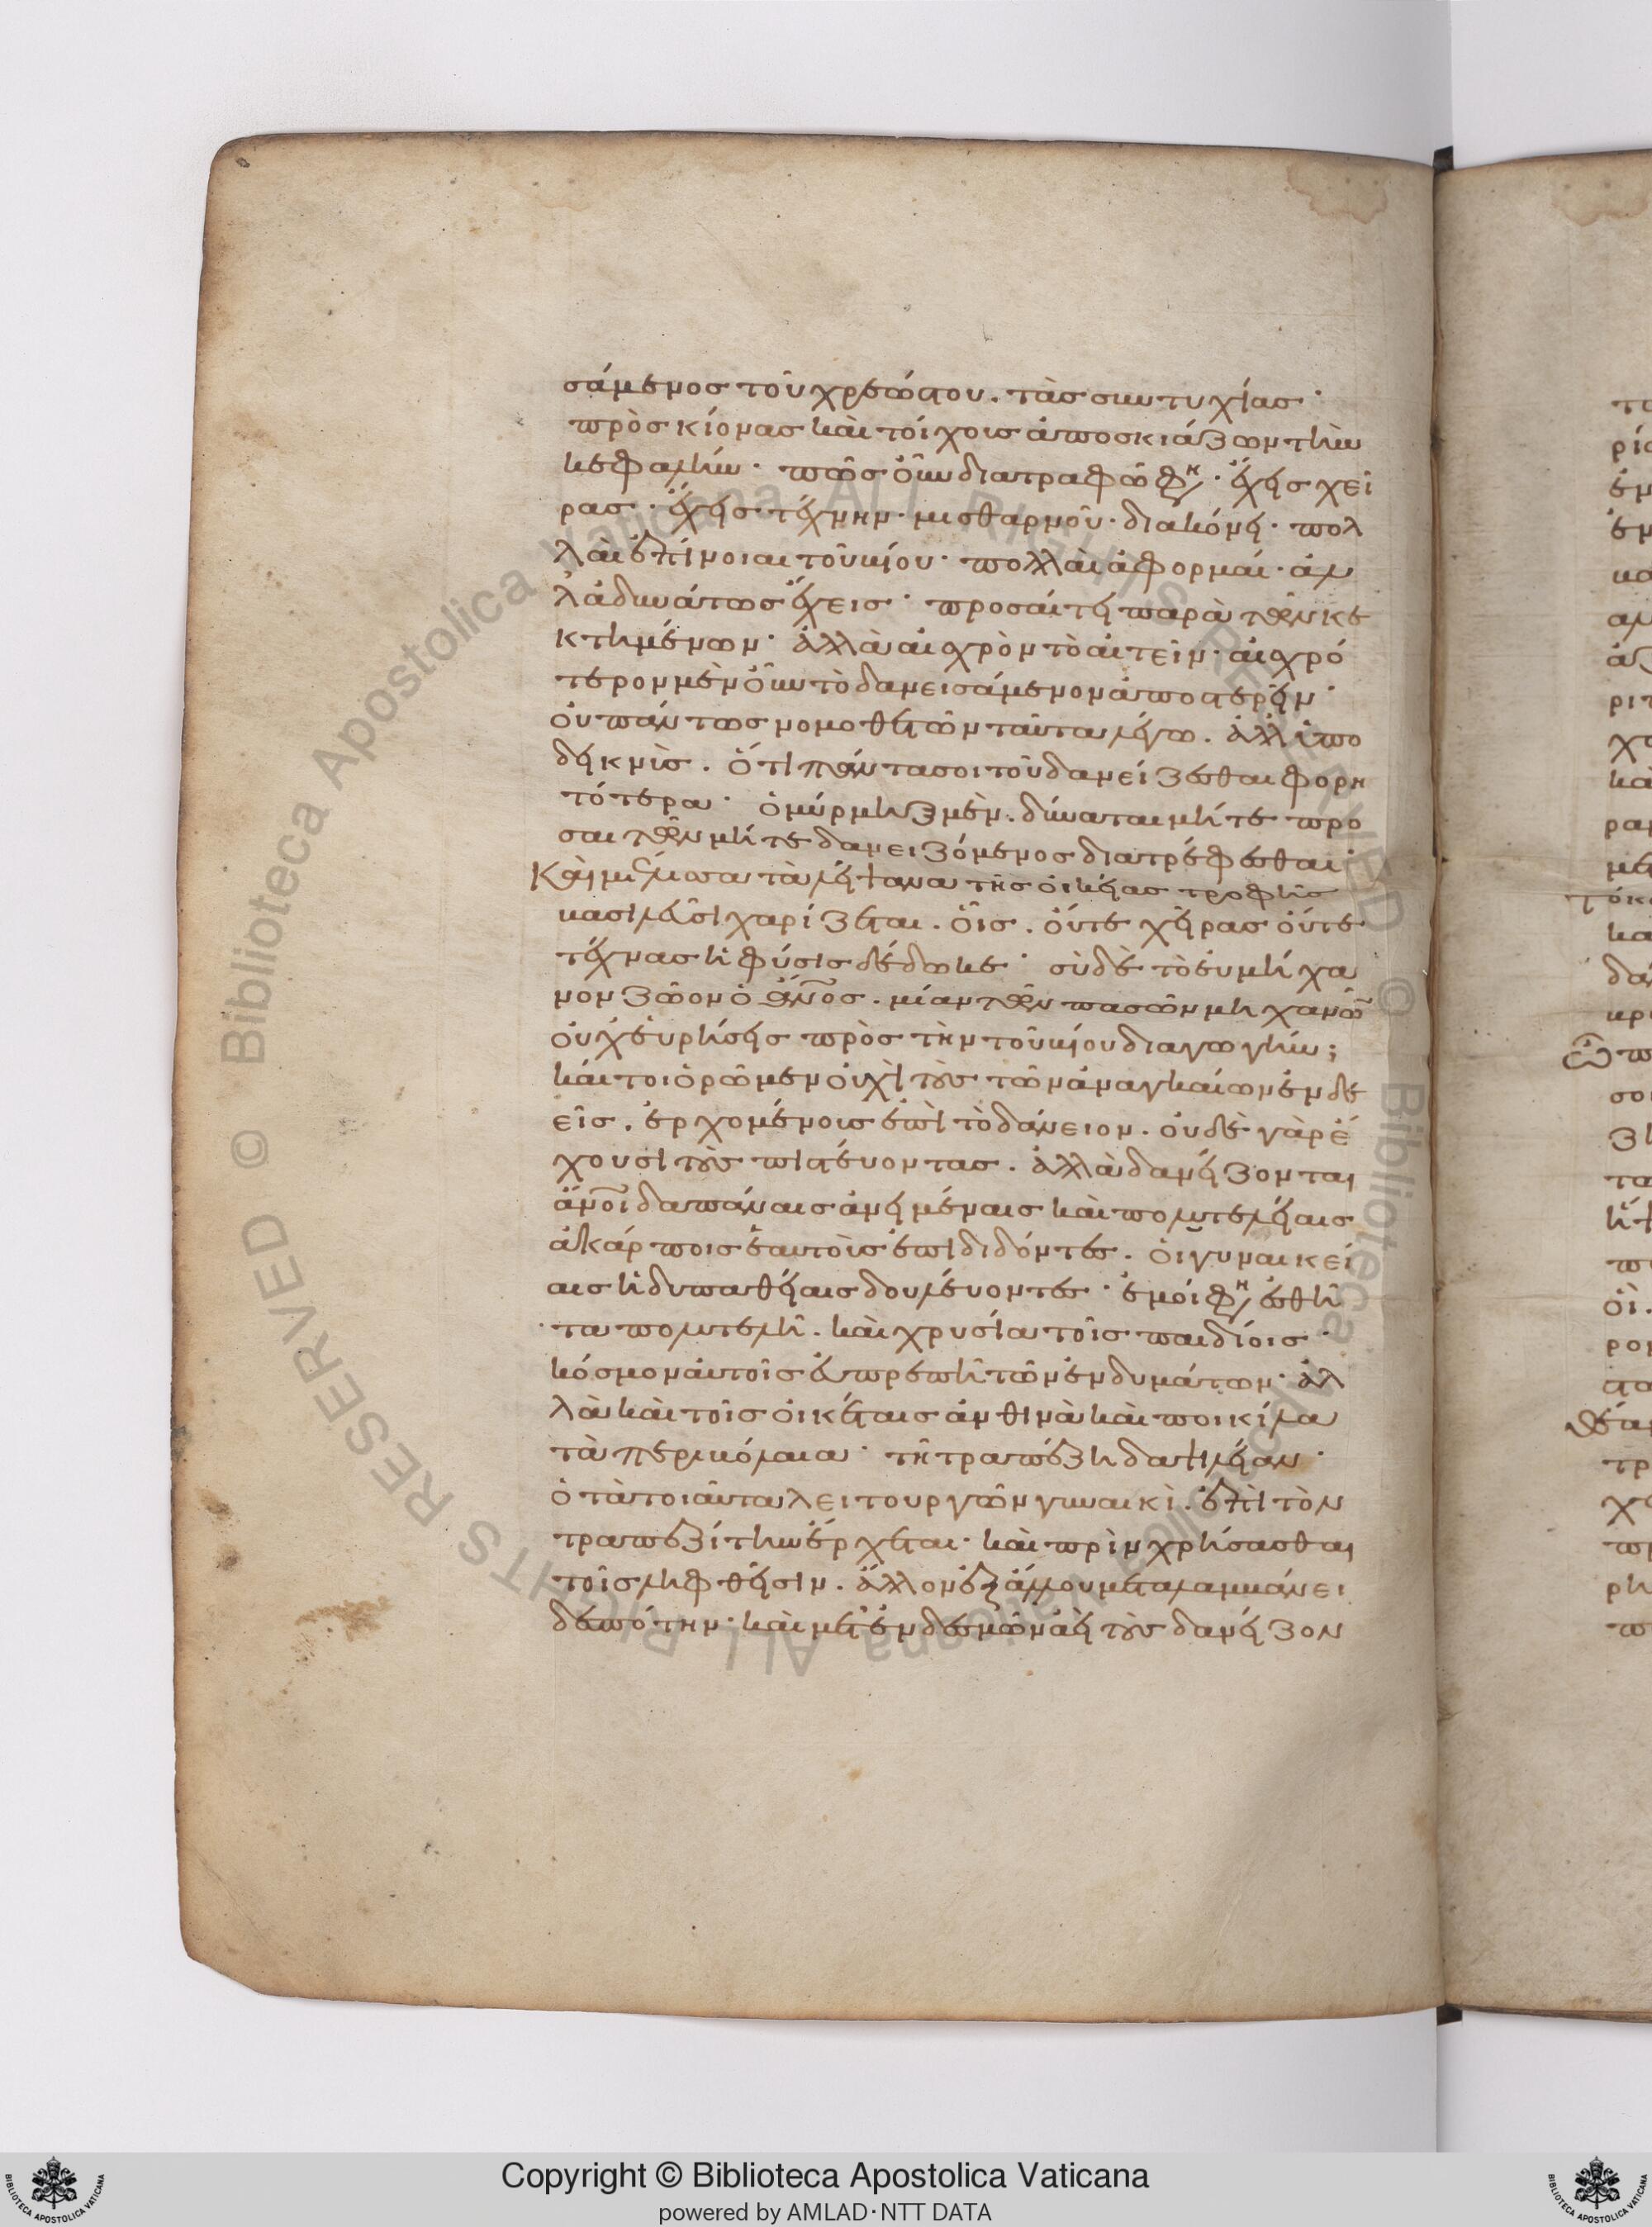 σάμενος τοῦ χρεώστου. τὰς συντυχίας·
πρὸς κίονας καὶ τοίχοις ἀποσκιάζων τὴν
κεφαλήν· πῶς οὖν διατραφῶ φη· ἔχεις χεῖ
ρας· ἔχεις τέχνην· μισθαρνοῦ· διακόνει· πολ
λαὶ ἐπίνοιαι τοῦ βίου· πολλαὶ ἀφορμαί· ἀλ
λ᾽ ἀδυνάτως ἔχεις· προσαίτει παρὰ τῶν κε
κτημένων· ἀλλὰ αἰσχρὸν τὸ αἰτεῖν· αἰσχρό
τερον μὲν οὖν τὸ δανεισάμενον ἀποστερεῖν·
οὐ πάντως νομοθετῶν ταῦτα λέγω. ἀλλ᾽ ἐπι
δεικνὺς. ὅτι πάντα σοι τοῦ δανείζεσθαι φορη
τότερα· ὁ μύρμηξ μὲν. δύναται μήτε προ
σαιτῶν μήτε δανειζόμενος διατρέφεσθαι·
Καὶ μέλισσα τὰ λείψανα τῆς οἰκείας τροφῆς
βασιλεῦσι χαρίζεται. οἷς. οὔτε χεῖρας οὔτε
τέχνας ἡ φύσις δέδωκε· σὺ δὲ τὸ εὐμήχα
νον ζῶον ὁ ἄνος. μίαν τῶν πασῶν μηχανῶ
οὐχ εὑρήσεις πρὸς τὴν τοῦ βίου διαγωγήν;
καίτοι ὁρῶμεν οὐχὶ τοὺς τῶν ἀναγκαίων ἐνδε
εῖς. ἐρχομένοις ἐπὶ τὸ δάνειον. οὐδὲ γὰρ ἔ
χουσι τοὺς πιστεύοντας. ἀλλὰ δανείζονται
ἄνοι δαπάναις ἀνειμέναις καὶ πολυτελείαις
ἀκάρποις ἑαυτοὺς ἐπιδιδόντες. οἱ γυναικεί
αις ἡδυπαθείαις δουλεύοντες· ἐμοί φη ἐσθῆ
τα πολυτελῆ. καὶ χρυσία τοῖς παιδίοις·
κόσμον αὐτοῖς εὐπρεπῆ τῶν ἐνδυμάτων· ἀλ
λὰ καὶ τοῖς οἰκέταις ἀνθινὰ καὶ ποικίλα
τὰ περιβόλαια· τῆ τραπέζη δαψίλειαν·
ὁ τὰ τοιαῦτα λειτουργῶν γυναικὶ. ἐπὶ τὸν
τραπεζίτην ἔρχεται· καὶ πρὶν χρήσασθαι
τοῖς ληφθεῖσιν. ἄλλον ἐξ ἄλλου μεταλαμβάνει
δεσπότην· καὶ μετενδεσμῶν ἀεὶ τοὺς δανείζον
Copyright © Biblioteca Apostolica Vaticana
powered by AMLAD·NTT DATA